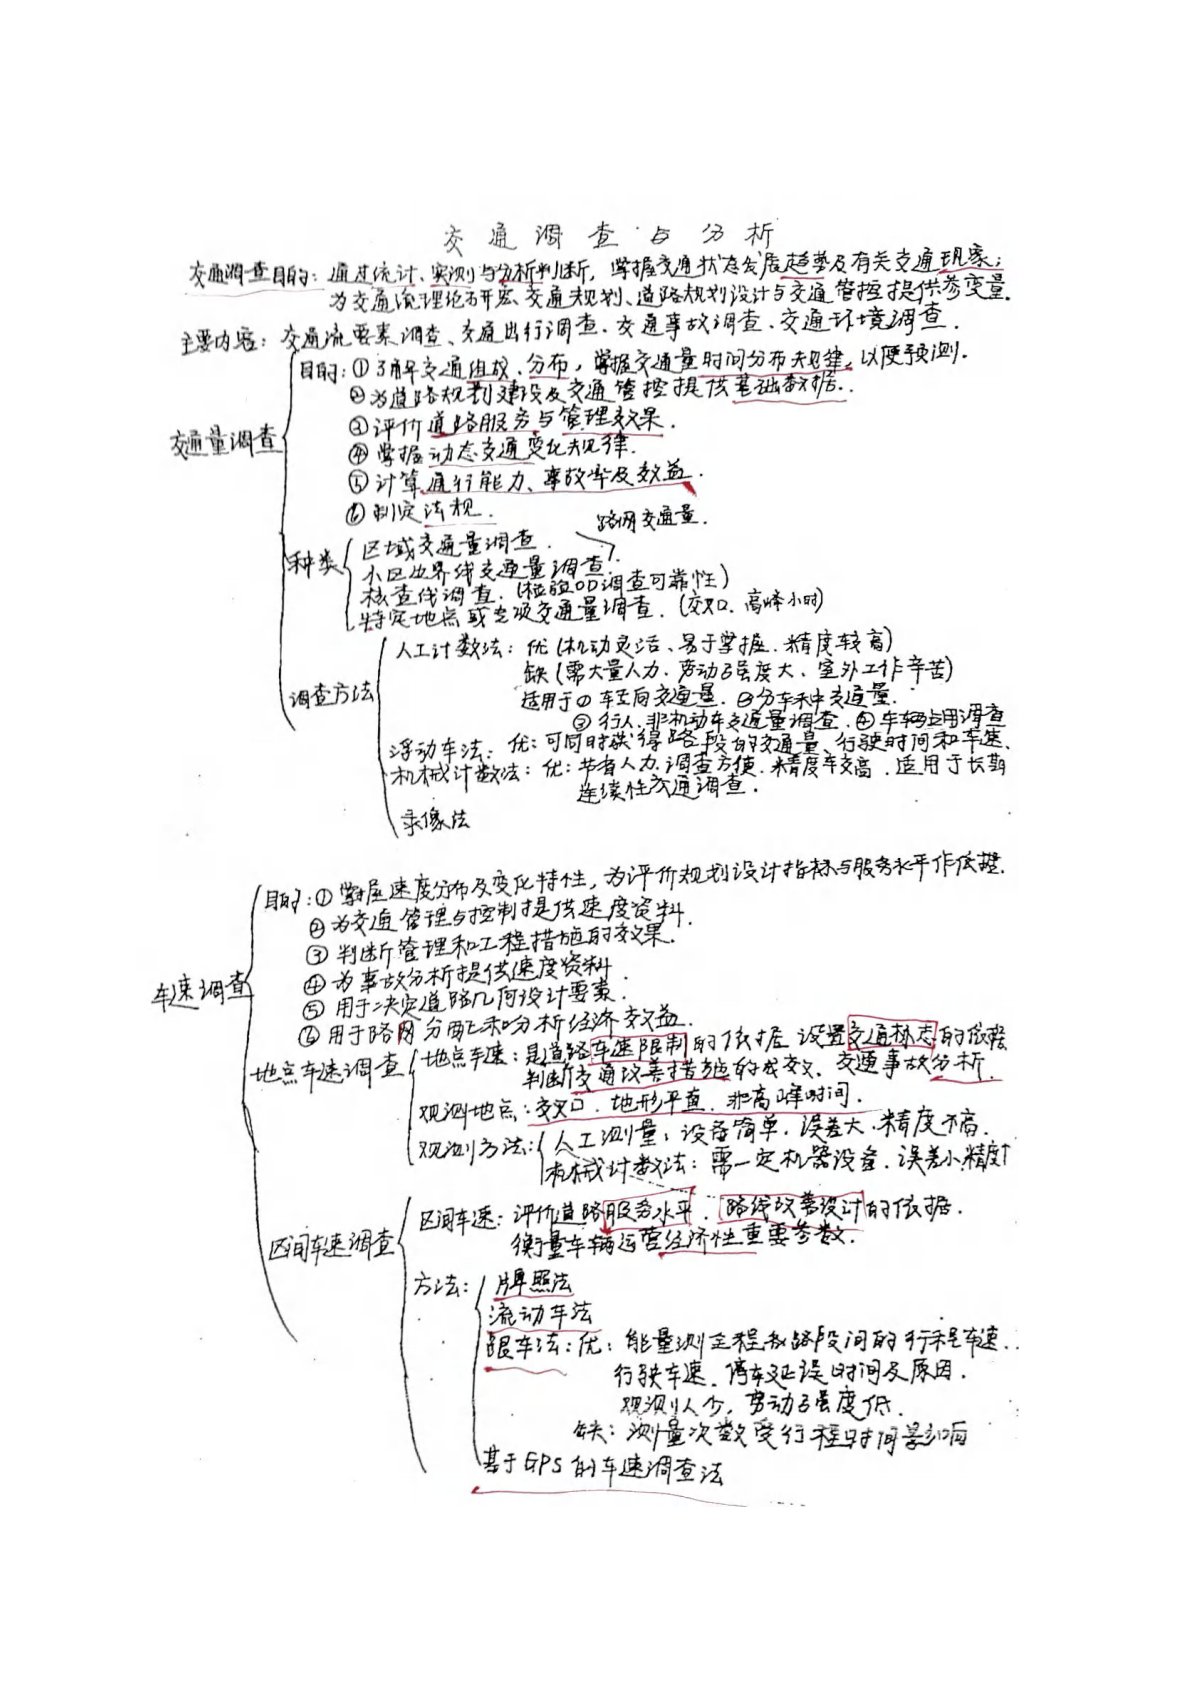 交通调查与分析
交通调查目的：通过统计、实测与分析判断，掌握交通状态发展趋势及有关交通现象；
为交通流理论研究、交通规划、道路规划设计与交通管控提供参变量．
主要内容：交通流要素调查、交通出行调查、交通事故调查、交通环境调查．
目的：①了解交通组成、分布，掌握交通量时间分布规律，以便预测．
②为道路规划建设及交通管控提供基础数据．
交通量调查
③评价道路服务与管理效果．
④掌握动态交通变化规律．
⑤计算通行能力、事故率及效益．
⑥制定法规．
路网交通量．
种类
区域交通量调查．
小区边界线交通量调查．
核查线调查．（检验OD调查可靠性）
特定地点或专项交通量调查．（交叉口、高峰小时）
调查方法
人工计数法：优（机动灵活、易于掌握、精度较高）
缺（需大量人力、劳动强度大、室外工作辛苦）
适用于①车互向交通量．②分车种交通量．
③行人、非机动车交通量调查．④车辆占用调查
浮动车法．优：可同时获得路段的交通量、行驶时间和车速．
机械计数法：优：节省人力、调查方便、精度较高．适用于长期
连续性交通调查．
录像法
目的：①掌握速度分布及变化特性，为评价规划设计指标与服务水平作依据．
②为交通管理与控制提供速度资料．
③判断管理和工程措施的效果．
车速调查
④为事故分析提供速度资料．
⑤用于决定道路几何设计要素．
⑥用于路网分配和分析经济效益．
地点车速调查
地点车速：是道路车速限制的依据 设置交通标志的依据
判断交通改善措施的成效、交通事故分析．
观测地点：交叉口、地形平直、非高峰时间．
观测方法：
人工测量：设备简单．误差大．精度不高．
机械计数法：需一定机器设备．误差小．精度↑
区间车速调查
区间车速：评价道路服务水平．路线改善设计的依据．
衡量车辆运营经济性重要参数．
方法：
牌照法
流动车法
跟车法：优：能量测全程和路段间的行程车速．
行驶车速．停车延误时间及原因．
观测人少，劳动强度低．
缺：测量次数受行程时间影响
基于GPS的车速调查法